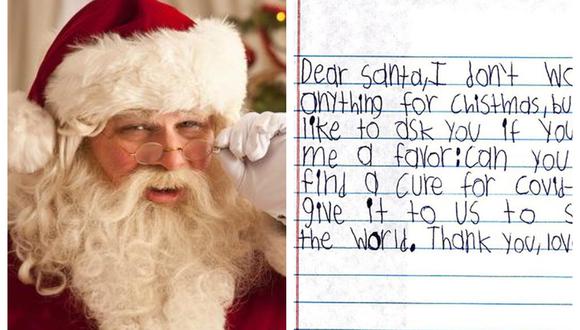 Dear santa, I don't
anything for chistmas, bu
like to ask you if you
me a favor: can you
find a cure for covid-
give it to us to s
the world. Thank you, lov